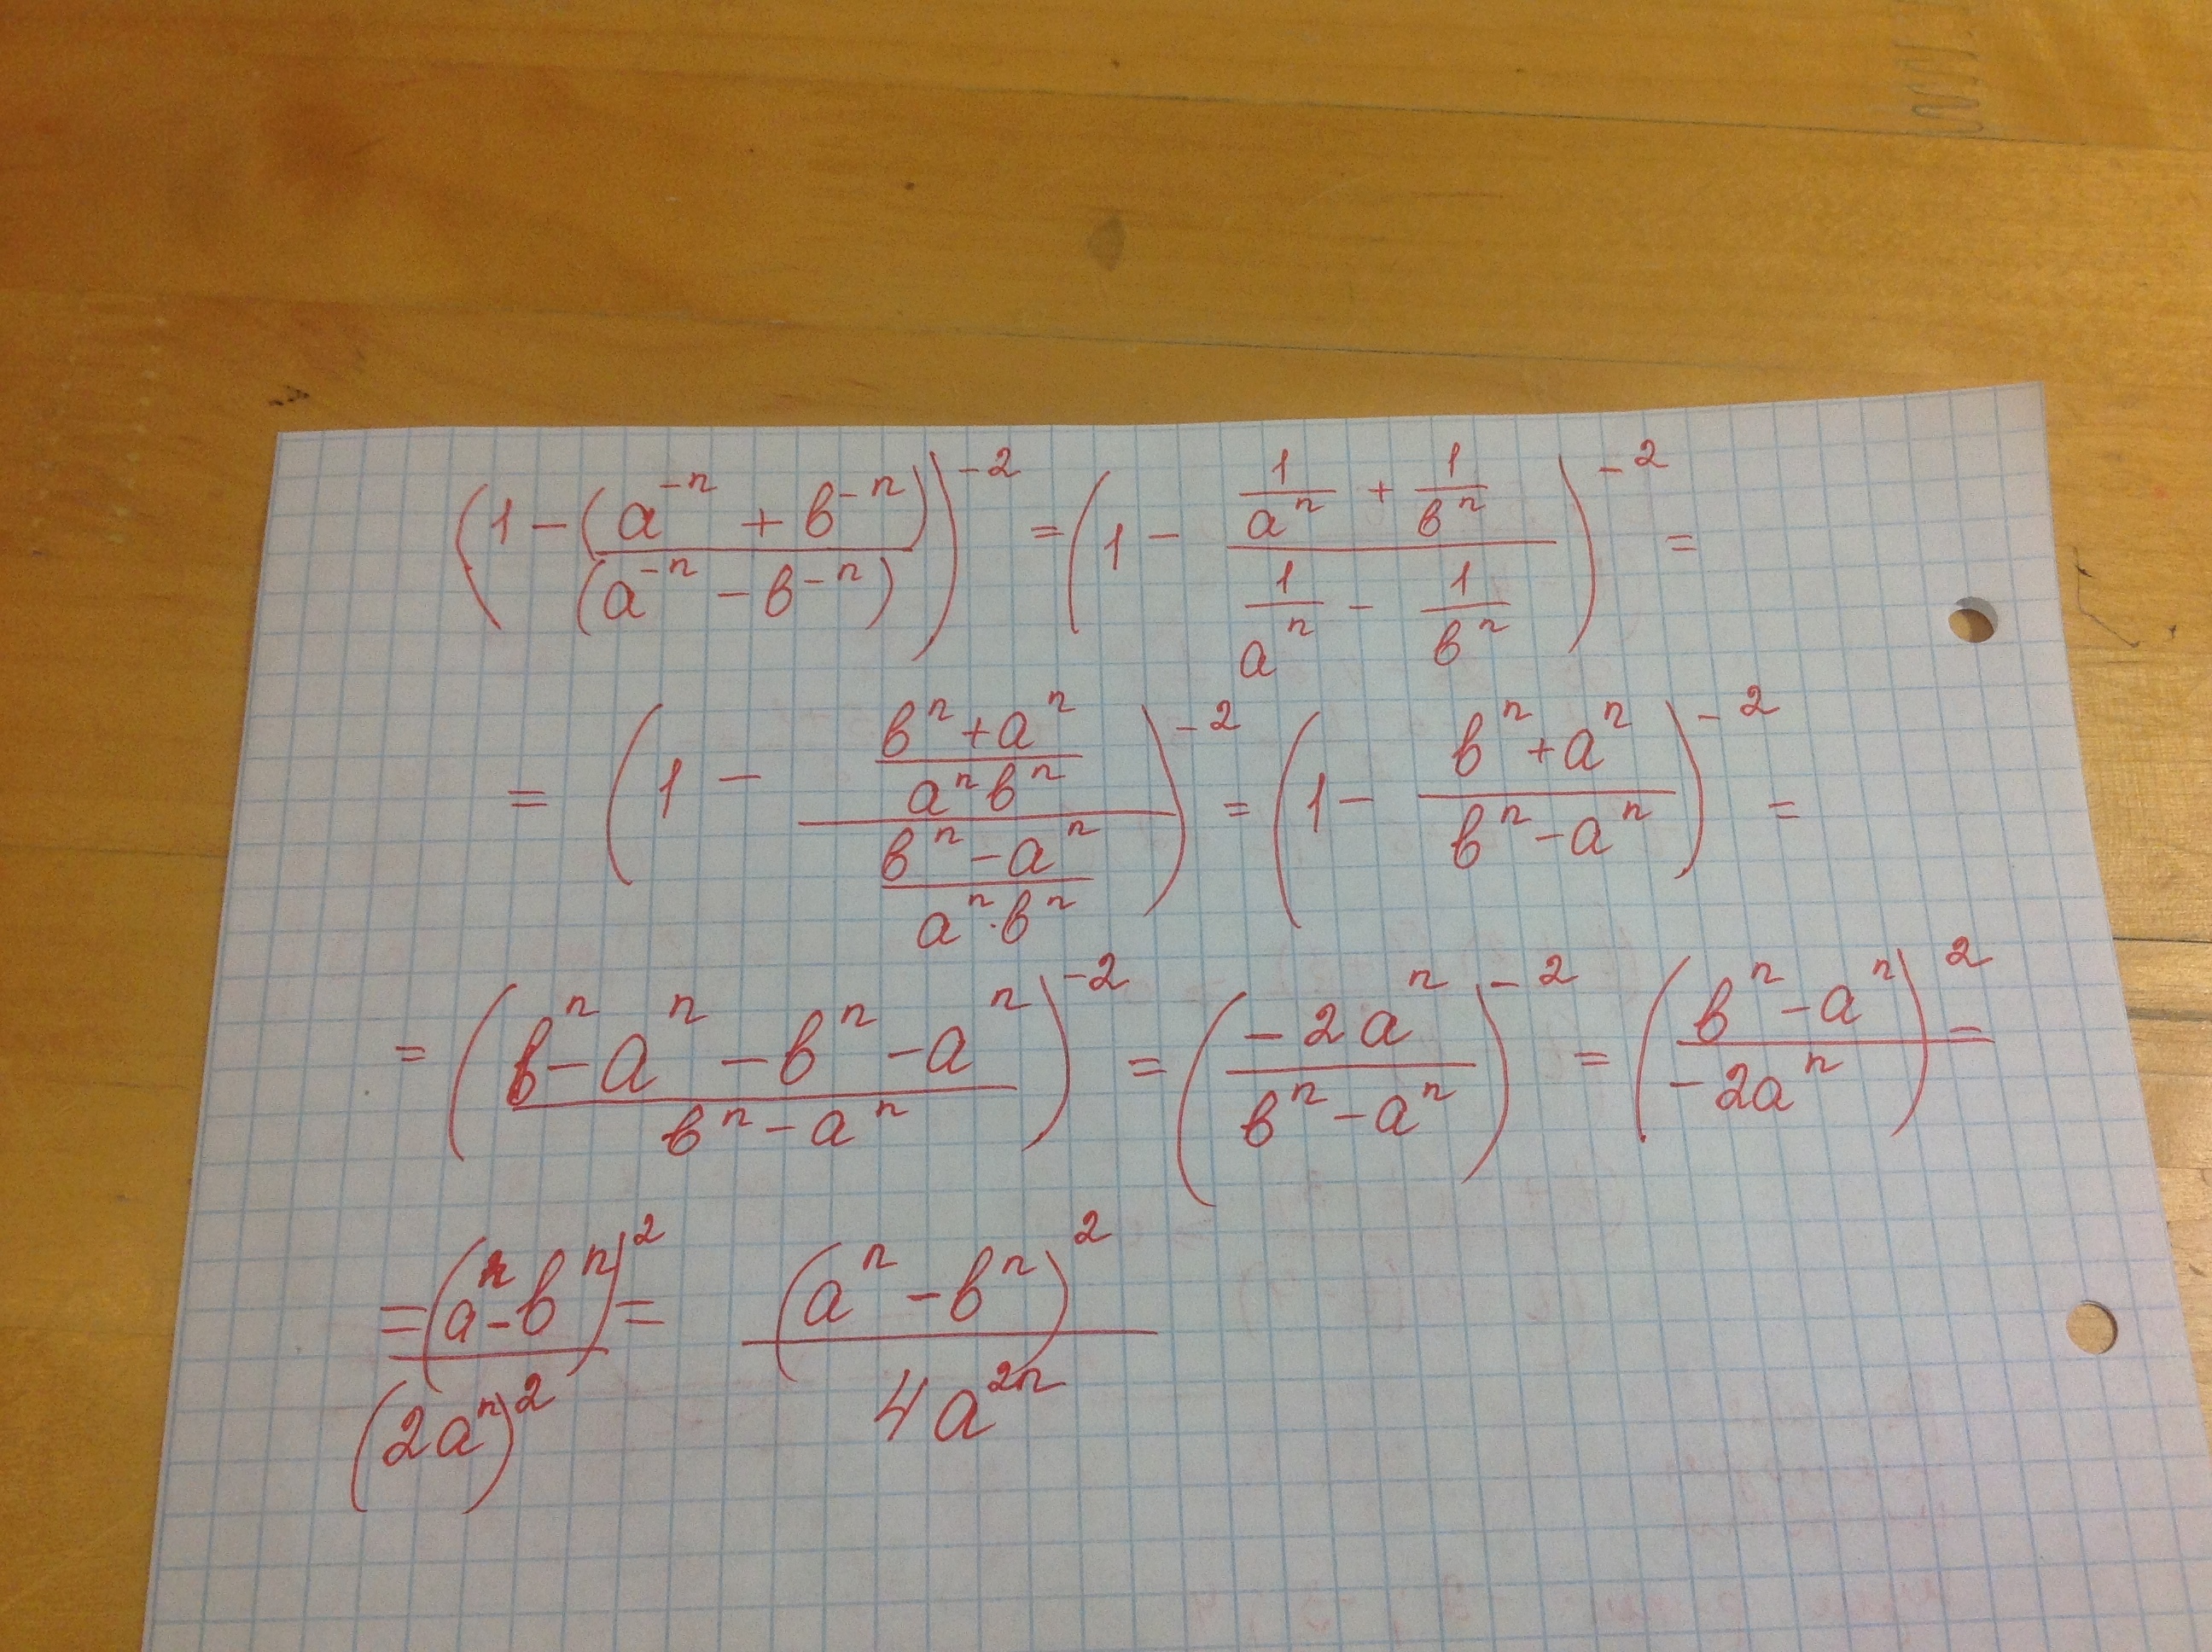 (1 - (a^{-n} + b^{-n}) / (a^{-n} - b^{-n}))^{-2} = (1 - (1/a^n + 1/b^n) / (1/a^n - 1/b^n))^{-2} =
= (1 - ((b^n + a^n) / (a^n b^n)) / ((b^n - a^n) / (a^n · b^n)))^{-2} = (1 - (b^n + a^n) / (b^n - a^n))^{-2} =
= ((b^n - a^n - b^n - a^n) / (b^n - a^n))^{-2} = (-2a^n / (b^n - a^n))^{-2} = ((b^n - a^n) / (-2a^n))^2 =
= (a^n - b^n)^2 / (2a^n)^2 = (a^n - b^n)^2 / 4a^{2n}